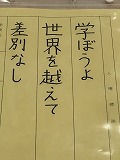 学ぼうよ
世界を越えて
差別なし